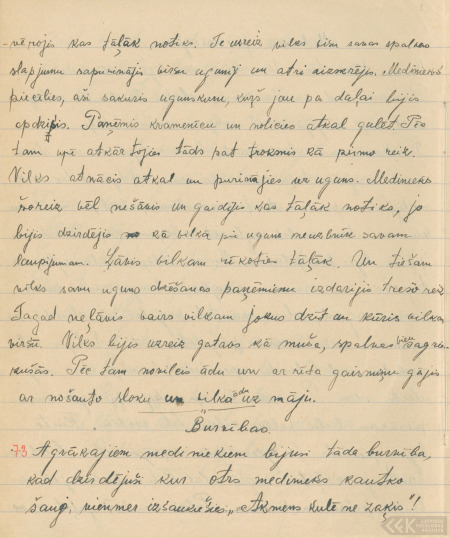 -vērojis kas tāļāk notiks. Te uzreiz vilks visu savas spalvas
slapjumu sapurinājis virsu ugunij un ātri aizskrējis. Mednieks
piecēlies, aši sakūris ugunskuru, kurš jau pa daļai bijis
apdzisis. Paņēmis kramenicu un nolicies atkal gulēt. Pēc
tam upē atkārtojies tāds pat troksnis kā pirmo reiz.
Vilks atnācis atkal un purinājies uz uguns. Mednieks
šoreiz vēl nešāvis un gaidījis kas tāļāk notiks, jo
bijis dzirdējis kā vilks pie uguns neuzbrūk savam
laupījumam. Ļāvis vilkam rīkoties tālāk. Un tiešam
vilks savu uguns dzēšanas paņēmienu izdarījis trešo reiz
Tagad neļāvis vairs vilkam jokus dzīt un kūris vilkam
virsū. Vilks bijis uzreiz gatavs kā muša, spalvas vien sagrū-
kušās. Pēc tam novilcis ādu un ar rīta gaismiņu gājis
ar nošauto sloku un vilka ādu uz māju.
Burvības
73. Agrākajiem medniekiem bijusi tāda burvība,
kad dzirdējuši kur otrs mednieks kautko
šauj, vienmēr izsaukušies, "Akmens kulē ne zaķis"!